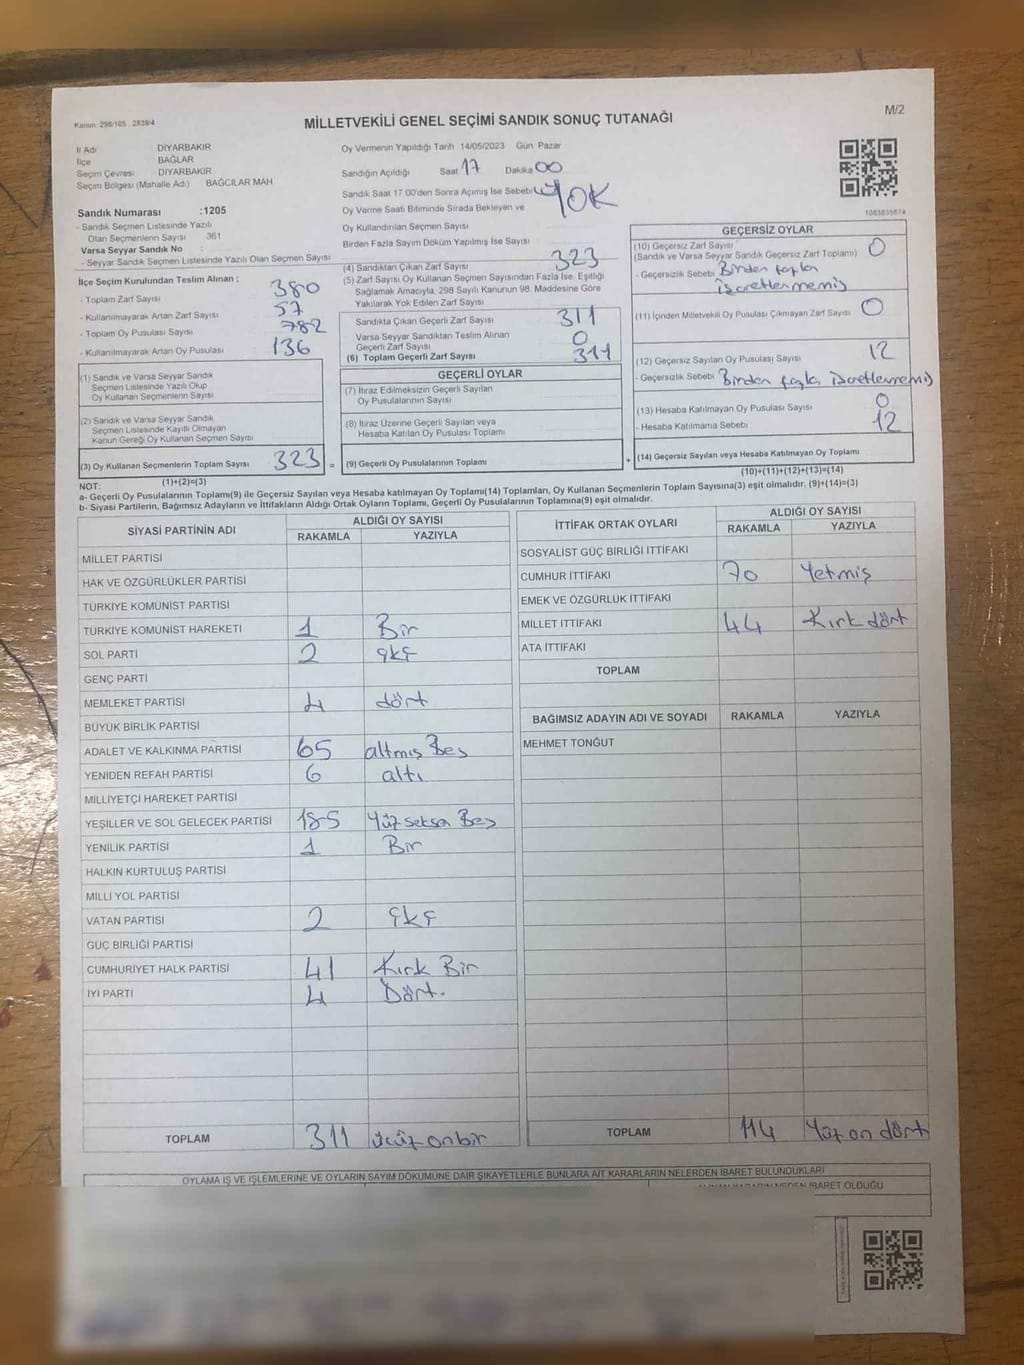 Kanun 298/105 , 2839/4
M/2
MİLLETVEKİLİ GENEL SEÇİMİ SANDIK SONUÇ TUTANAĞI
İl Adı DİYARBAKIR
İlçe BAĞLAR
Seçim Çevresi DİYARBAKIR
Seçim Bölgesi (Mahalle Adı) BAĞCILAR MAH
Sandık Numarası :1205
- Sandık Seçmen Listesinde Yazılı
Olan Seçmenlerin Sayısı 361
Varsa Seyyar Sandık No :
- Seyyar Sandık Seçmen Listesinde Yazılı Olan Seçmen Sayısı
Oy Vermenin Yapıldığı Tarih 14/05/2023 Gün Pazar
Sandığın Açıldığı Saat 17 Dakika 00
Sandık Saat 17 00'den Sonra Açılmış İse Sebebi YOK
Oy Verme Saati Bitiminde Sırada Bekleyen ve
Oy Kullandırılan Seçmen Sayısı
Birden Fazla Sayım Döküm Yapılmış İse Sayısı
1083835874
İlçe Seçim Kurulundan Teslim Alınan :
- Toplam Zarf Sayısı 380
- Kullanılmayarak Artan Zarf Sayısı 57
- Toplam Oy Pusulası Sayısı 782
- Kullanılmayarak Artan Oy Pusulası 136
(1) Sandık ve Varsa Seyyar Sandık
Seçmen Listesinde Yazılı Olup
Oy Kullanan Seçmenlerin Sayısı
(2) Sandık ve Varsa Seyyar Sandık
Seçmen Listesinde Kayıtlı Olmayan
Kanun Gereği Oy Kullanan Seçmen Sayısı
(3) Oy Kullanan Seçmenlerin Toplam Sayısı 323 =
(1)+(2)=(3)
(4) Sandıktan Çıkan Zarf Sayısı 323
(5) Zarf Sayısı Oy Kullanan Seçmen Sayısından Fazla İse, Eşitliği
Sağlamak Amacıyla, 298 Sayılı Kanunun 98. Maddesine Göre
Yakılarak Yok Edilen Zarf Sayısı
Sandıkta Çıkan Geçerli Zarf Sayısı 311
Varsa Seyyar Sandıktan Teslim Alınan
Geçerli Zarf Sayısı 0
(6) Toplam Geçerli Zarf Sayısı 311
GEÇERLİ OYLAR
(7) İtiraz Edilmeksizin Geçerli Sayılan
Oy Pusulalarının Sayısı
(8) İtiraz Üzerine Geçerli Sayılan veya
Hesaba Katılan Oy Pusulası Toplamı
(9) Geçerli Oy Pusulalarının Toplamı +
GEÇERSİZ OYLAR
(10) Geçersiz Zarf Sayısı 0
(Sandık ve Varsa Seyyar Sandık Geçersiz Zarf Toplamı)
- Geçersizlik Sebebi Birden fazla
işaretlenmemiş
(11) İçinden Milletvekili Oy Pusulası Çıkmayan Zarf Sayısı 0
(12) Geçersiz Sayılan Oy Pusulası Sayısı 12
- Geçersizlik Sebebi Birden fazla işaretlenmemiş
(13) Hesaba Katılmayan Oy Pusulası Sayısı 0
- Hesaba Katılmama Sebebi 12
(14) Geçersiz Sayılan veya Hesaba Katılmayan Oy Toplamı
(10)+(11)+(12)+(13)=(14)
NOT:
a- Geçerli Oy Pusulalarının Toplamı(9) ile Geçersiz Sayılan veya Hesaba katılmayan Oy Toplamı(14) Toplamları, Oy Kullanan Seçmenlerin Toplam Sayısına(3) eşit olmalıdır. (9)+(14)=(3)
b- Siyasi Partilerin, Bağımsız Adayların ve İttifakların Aldığı Ortak Oyların Toplamı, Geçerli Oy Pusulalarının Toplamına(9) eşit olmalıdır.
SİYASİ PARTİNİN ADI ALDIĞI OY SAYISI
RAKAMLA YAZIYLA
MİLLET PARTİSİ
HAK VE ÖZGÜRLÜKLER PARTİSİ
TÜRKİYE KOMÜNİST PARTİSİ
TÜRKİYE KOMÜNİST HAREKETİ 1 Bir
SOL PARTİ 2 iki
GENÇ PARTİ
MEMLEKET PARTİSİ 4 dört
BÜYÜK BİRLİK PARTİSİ
ADALET VE KALKINMA PARTİSİ 65 altmış Beş
YENİDEN REFAH PARTİSİ 6 altı
MİLLİYETÇİ HAREKET PARTİSİ
YEŞİLLER VE SOL GELECEK PARTİSİ 185 Yüz seksen Beş
YENİLİK PARTİSİ 1 Bir
HALKIN KURTULUŞ PARTİSİ
MİLLİ YOL PARTİSİ
VATAN PARTİSİ 2 iki
GÜÇ BİRLİĞİ PARTİSİ
CUMHURİYET HALK PARTİSİ 41 Kırk Bir
İYİ PARTİ 4 Dört.
TOPLAM 311 üçüz onbir
İTTİFAK ORTAK OYLARI ALDIĞI OY SAYISI
RAKAMLA YAZIYLA
SOSYALİST GÜÇ BİRLİĞİ İTTİFAKI
CUMHUR İTTİFAKI 70 Yetmiş
EMEK VE ÖZGÜRLÜK İTTİFAKI
MİLLET İTTİFAKI 44 Kırk dört
ATA İTTİFAKI
TOPLAM
BAĞIMSIZ ADAYIN ADI VE SOYADI RAKAMLA YAZIYLA
MEHMET TONĞUT
TOPLAM 114 Yüz on dört
OYLAMA İŞ VE İŞLEMLERİNE VE OYLARIN SAYIM DÖKÜMÜNE DAİR ŞİKAYETLERLE BUNLARA AİT KARARLARIN NELERDEN İBARET BULUNDUKLARI
İBARET OLDUĞU